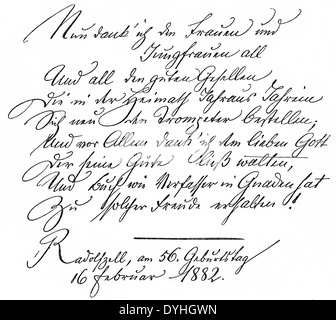 Nun dank' ich den Frauen und
Jungfrauen all
Und all den guten Gesellen
Die in der Heimath Jahraus Jahrein
Sich neu den Trompeter bestellen;
Und vor Allem dank' ich dem lieben Gott
Der seine Güte ließ walten,
Und Buch wie Verfasser in Gnaden hat
Zu solcher Freude erhalten!
Radolfzell, am 56. Geburtstag
16 Februar 1882.
alamy
DYHGWN